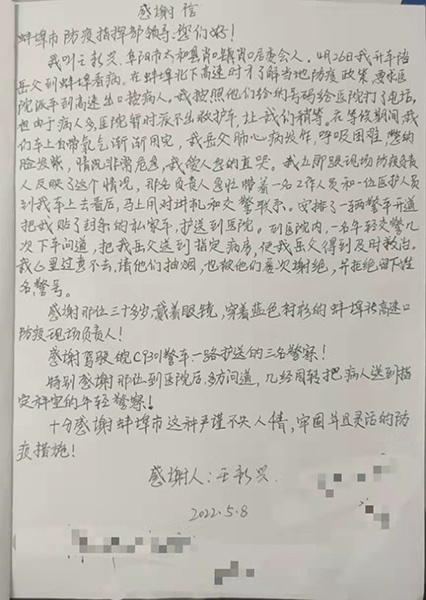 感谢信
蚌埠市防疫指挥部领导,您们好!
我叫王新兴,阜阳市太和县肖口镇肖口居委会人,4月26日我开车陪
岳父到蚌埠看病。在蚌埠北下高速时才了解当地防疫政策,要求医
院派车到高速出口接病人。我按照他们给的号码给医院打了电话,
但由于病人多,医院暂时派不出救护车,让我们稍等。在等候期间,我
们车上自带氧气渐渐用完,我岳父肺心病发作,呼吸困难,憋的
脸发紫,情况非常危急,我爱人急的直哭。我立即跟现场防疫负责
人反映了这个情况,那名负责人急忙带着一名工作人员和一位医护人员
到我车上查看后,马上用对讲机和交警联系。安排了一辆警车开道
把我贴了封条的私家车,护送到医院。到医院内,一名年轻交警几
次下车问道,把我岳父送到指定病房,使我岳父得到及时救治。
我心里过意不去,请他们抽烟,也被他们屡次谢绝,并拒绝留下姓
名警号。
感谢那位三十多岁,戴着眼镜,穿着蓝色衬衫的蚌埠北高速口
防疫现场负责人!
感谢驾驶皖C9301警车一路护送的三名警察!
特别感谢那位到医院后,多方问道,几经周转把病人送到指
定科室的年轻警察!
十分感谢蚌埠市这种严谨不失人情,牢固并且灵活的防
疫措施!
感谢人:王新兴
2022.5.8